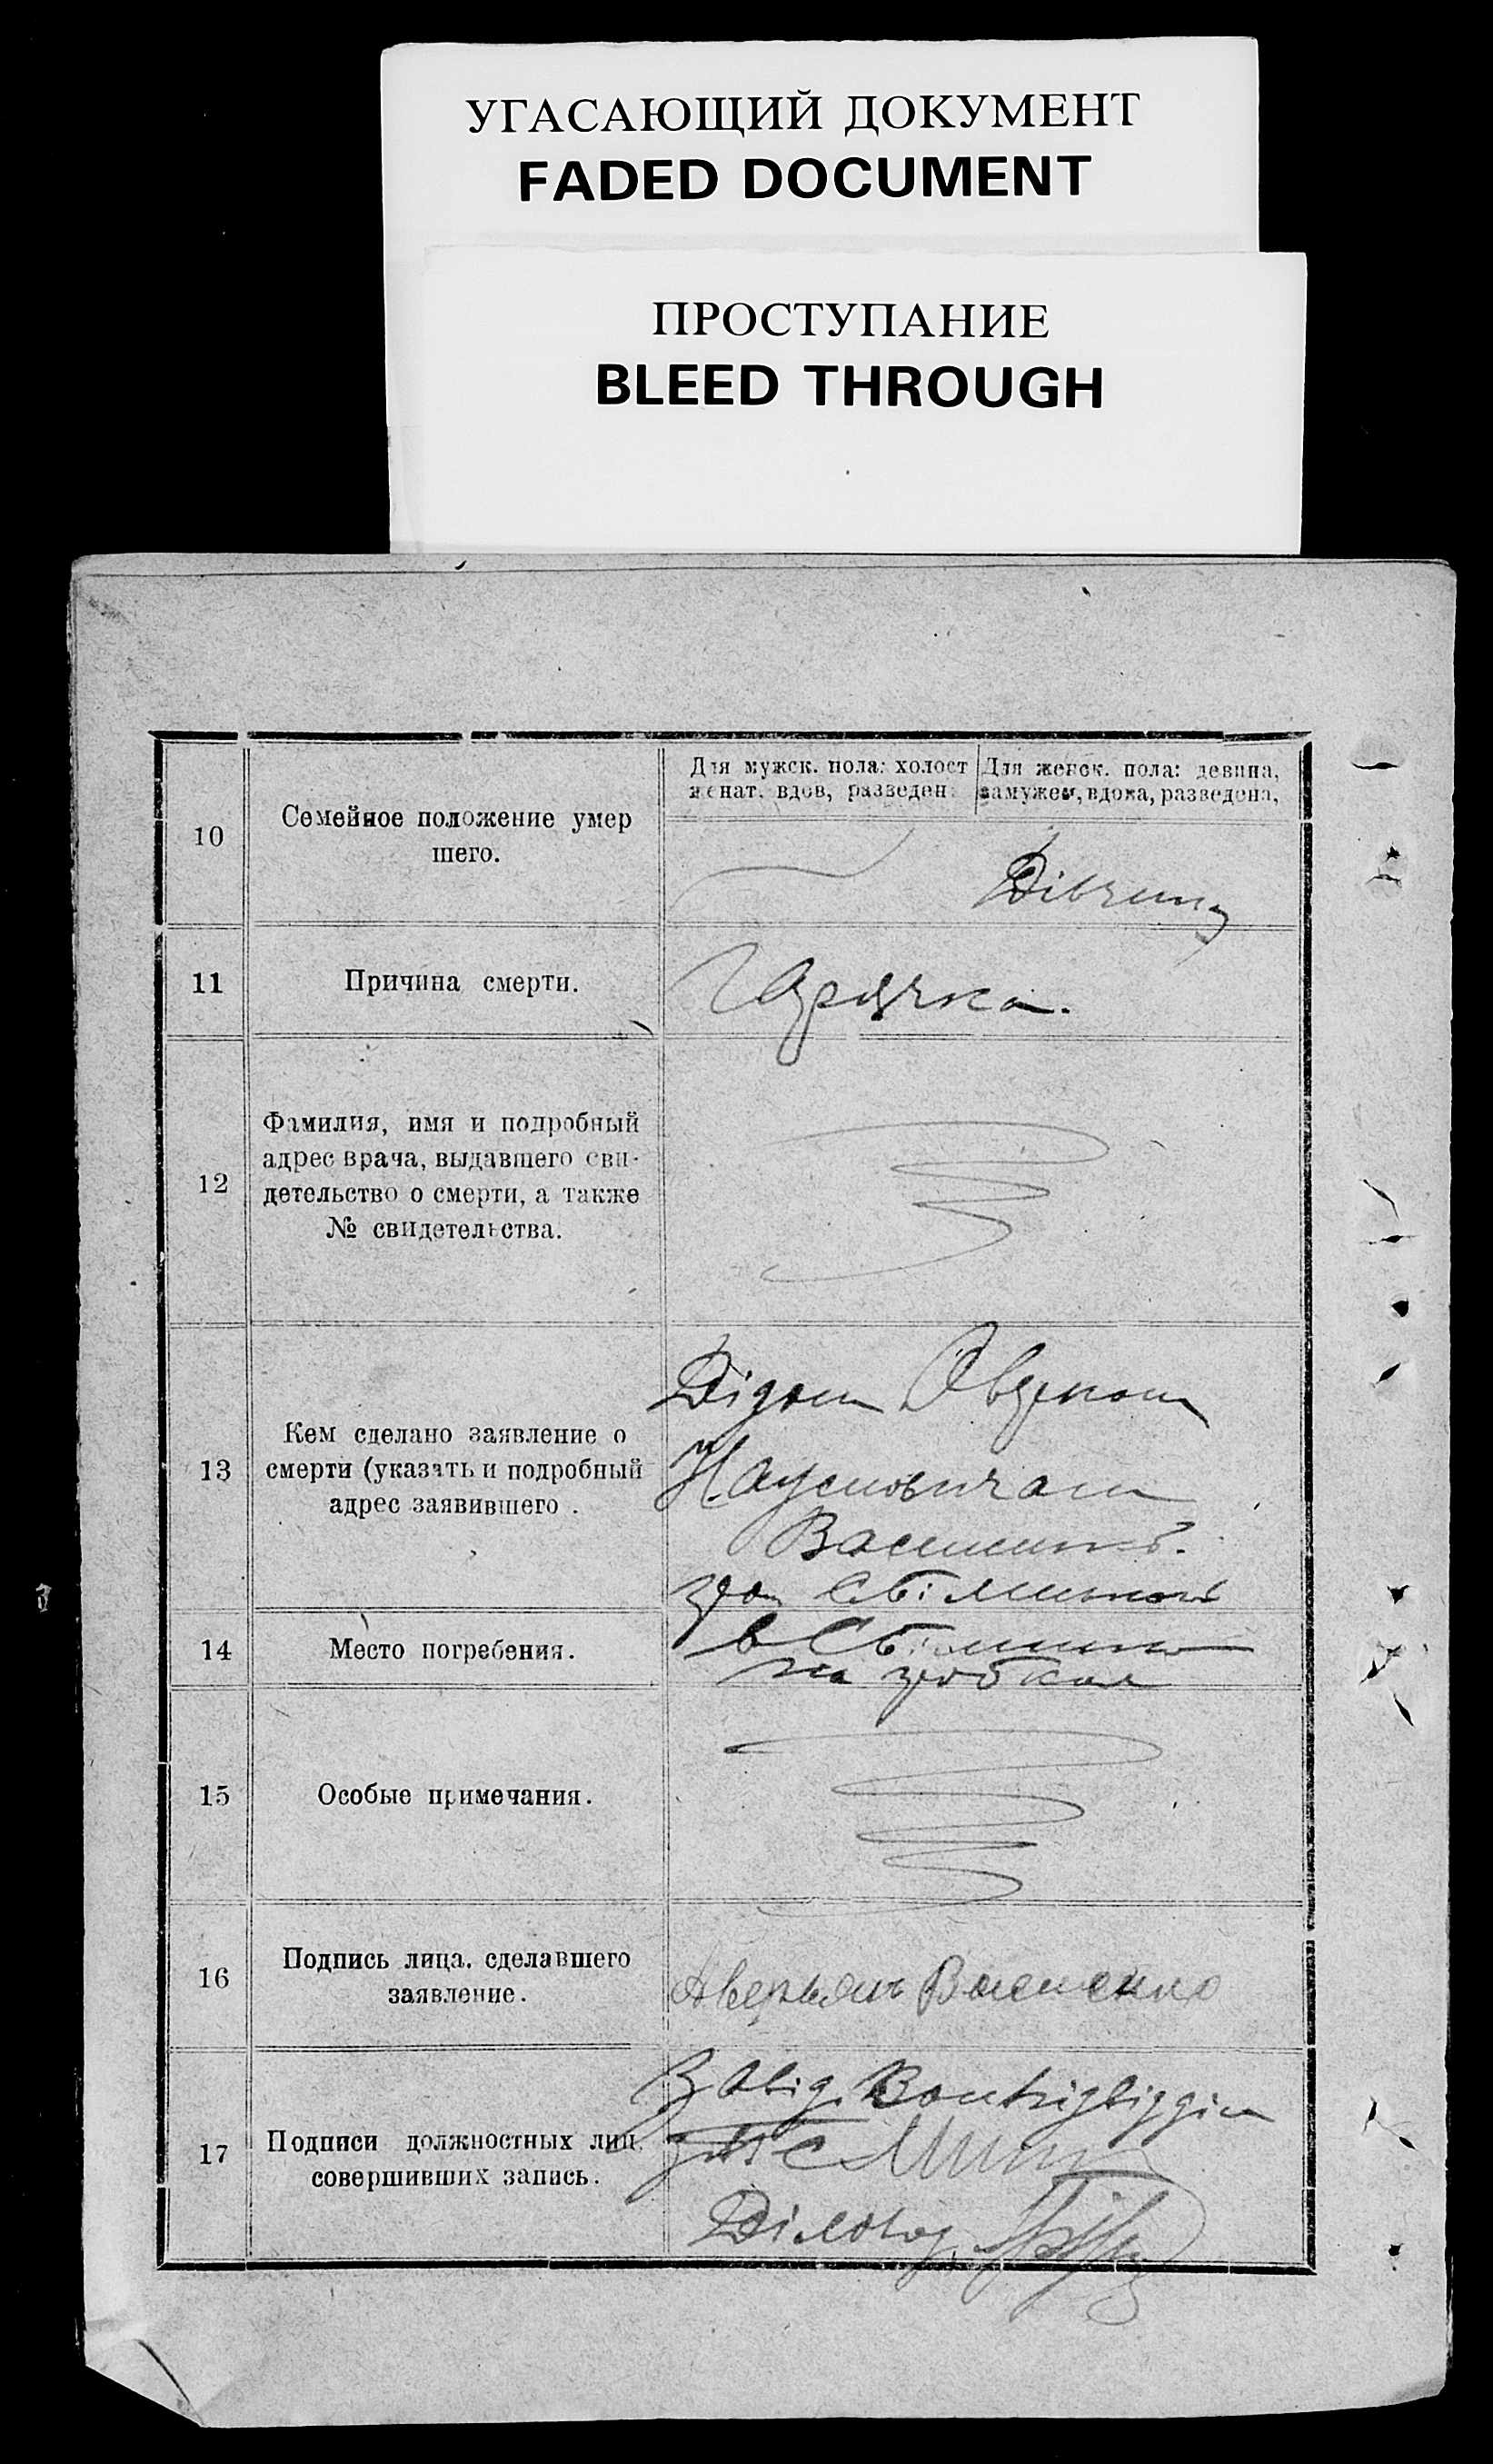 УГАСАЮЩИЙ ДОКУМЕНТ
FADED DOCUMENT
ПРОСТУПАНИЕ
BLEED THROUGH
10
Семейное положение умер
шего.
Для мужск. пола: холост
женат. вдов, разведен.
Для женск. пола: девица,
замужем, вдова, разведена,
Дівчина
11
Причина смерти.
Гарячка.
12
Фамилия, имя и подробный
адрес врача, выдавшего сви-
детельство о смерти, а также
№ свидетельства.
13
Кем сделано заявление о
смерти (указать и подробный
адрес заявившего .
Дідом
Наумовичом
гром
14
Место погребения.
в
на гробках
15
Особые примечания.
16
Подпись лица. сделавшего
заявление.
Аверьян Васисенко
17
Подписи должностных лиц.
совершивших запись.
Завід.
Діловод